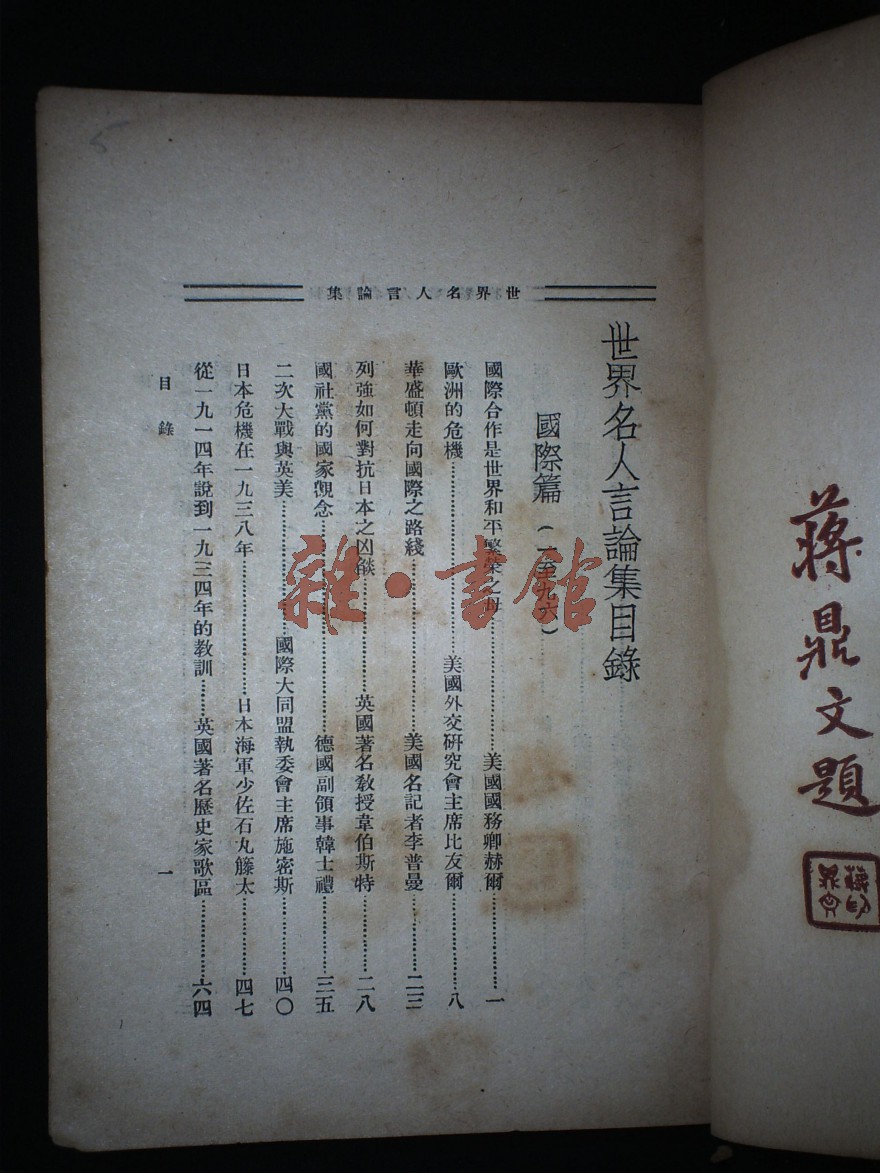 蔣鼎文題
世界名人言論集
世界名人言論集目錄
國際篇(一至九六)
國際合作是世界和平繁榮之母……美國國務卿赫爾……一
歐洲的危機……美國外交研究會主席比友爾……八
華盛頓走向國際之路綫……美國名記者李普曼……二三
列強如何對抗日本之凶燄……英國著名教授韋伯斯特……二八
國社黨的國家觀念……德國副領事韓士禮……三五
二次大戰與英美……國際大同盟執委會主席施密斯……四〇
日本危機在一九三八年……日本海軍少佐石丸籐太……四七
從一九一四年說到一九三四年的教訓……英國著名歷史家歌區……六四
目錄
一
雜·書館
5